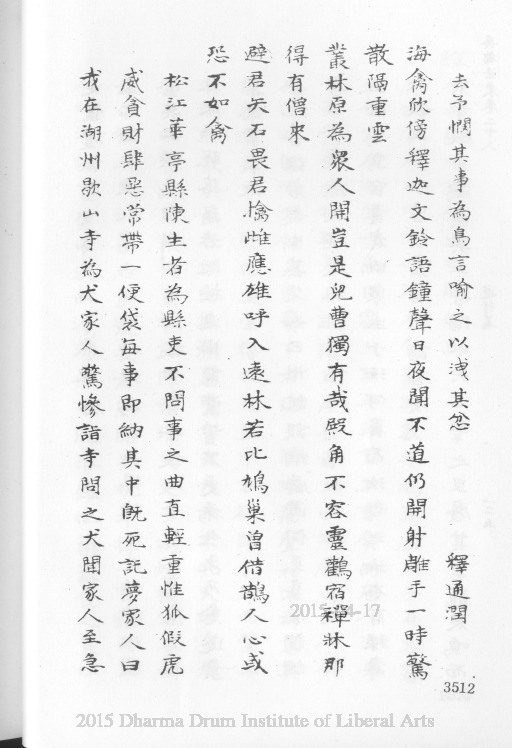 去予憫其事為鳥言喻之以洩其忿　釋通潤
海禽欣傍釋迦文鈴語鐘聲日夜聞不道仍開射雕手一時驚
散隔重雲
叢林原為眾人開豈是兒曹獨有哉殿角不容靈鸛宿禪牀那
得有僧來
避君矢石畏君擒雌應雄呼入遠林若比鳩巢曾借鵲人心或
恐不如禽
松江華亭縣陳生者為縣吏不問事之曲直輕重惟狐假虎
威貪財肆惡常帶一便袋每事即納其中既死託夢家人曰
我在湖州歇山寺為犬家人驚慘詣寺問之犬聞家人至急
3512
2015-04-17
2015 Dharma Drum Institute of Liberal Arts